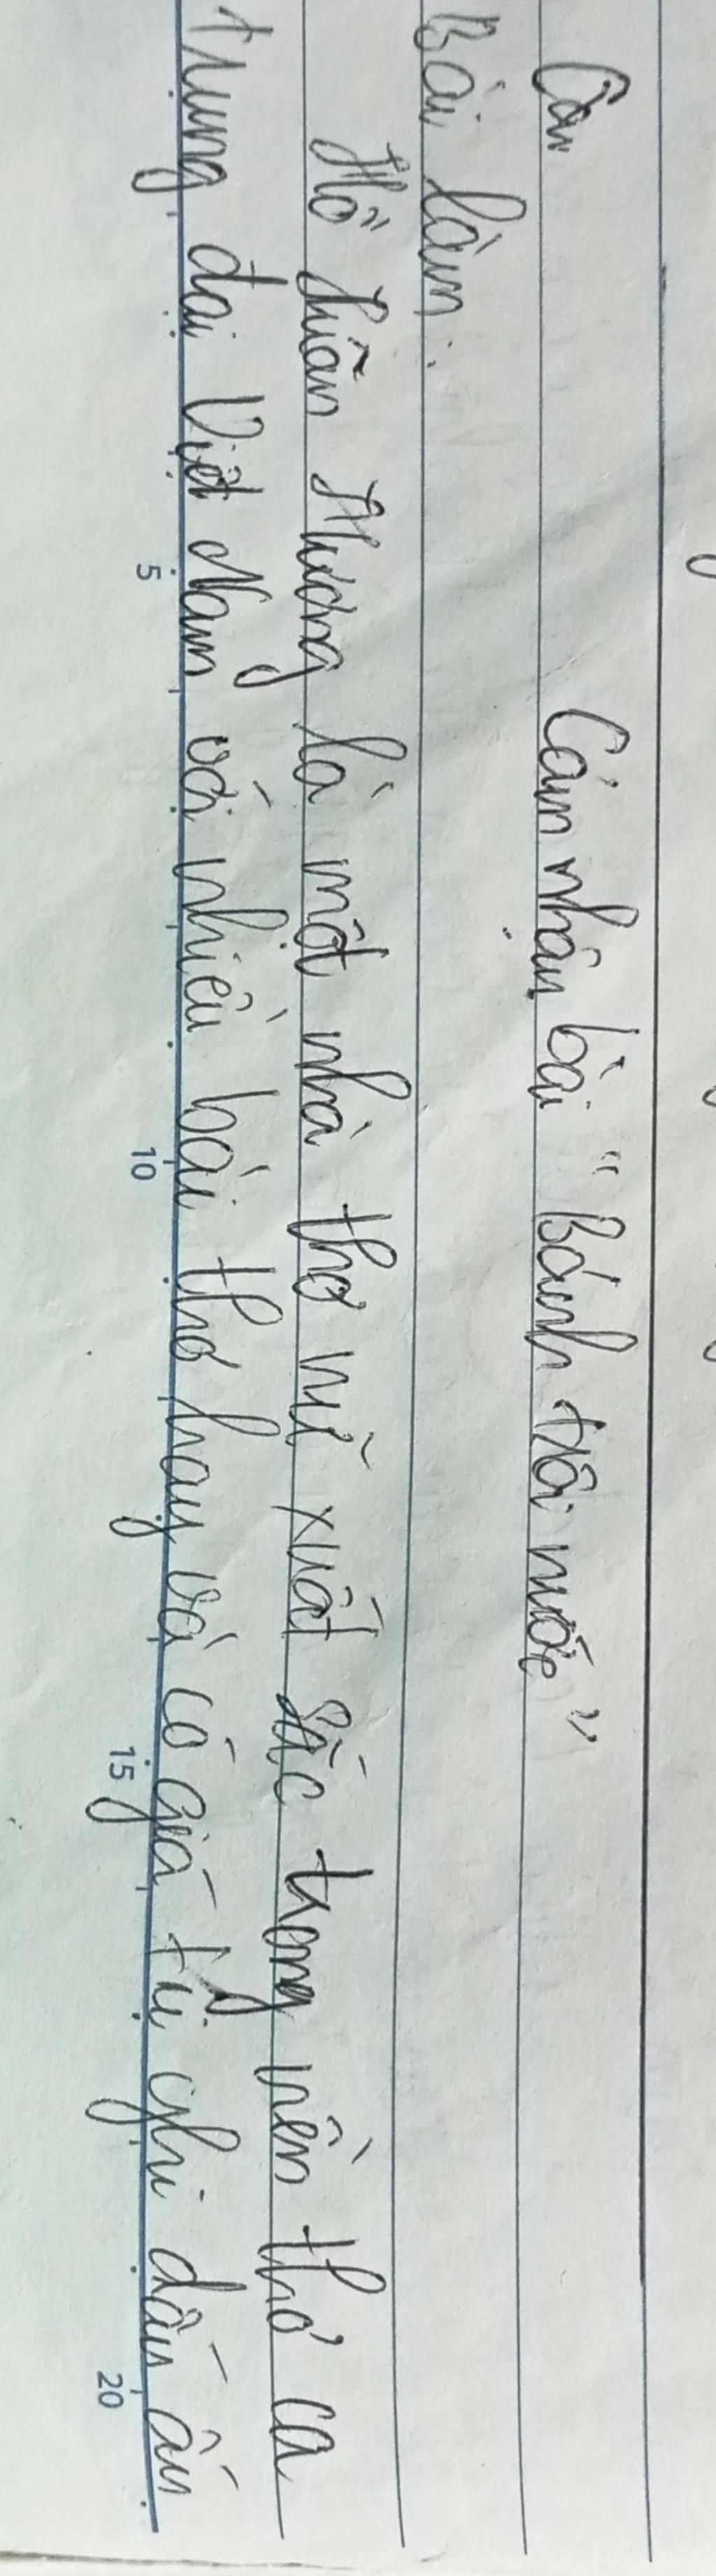 Cảm nhận bài "Bánh trôi nước"
Bài làm:
Hồ Xuân Hương là một nhà thơ nữ xuất sắc trong nền thơ ca
trung đại Việt Nam với nhiều bài thơ hay và có giá trị ghi dấu ấn
5 10 15 20